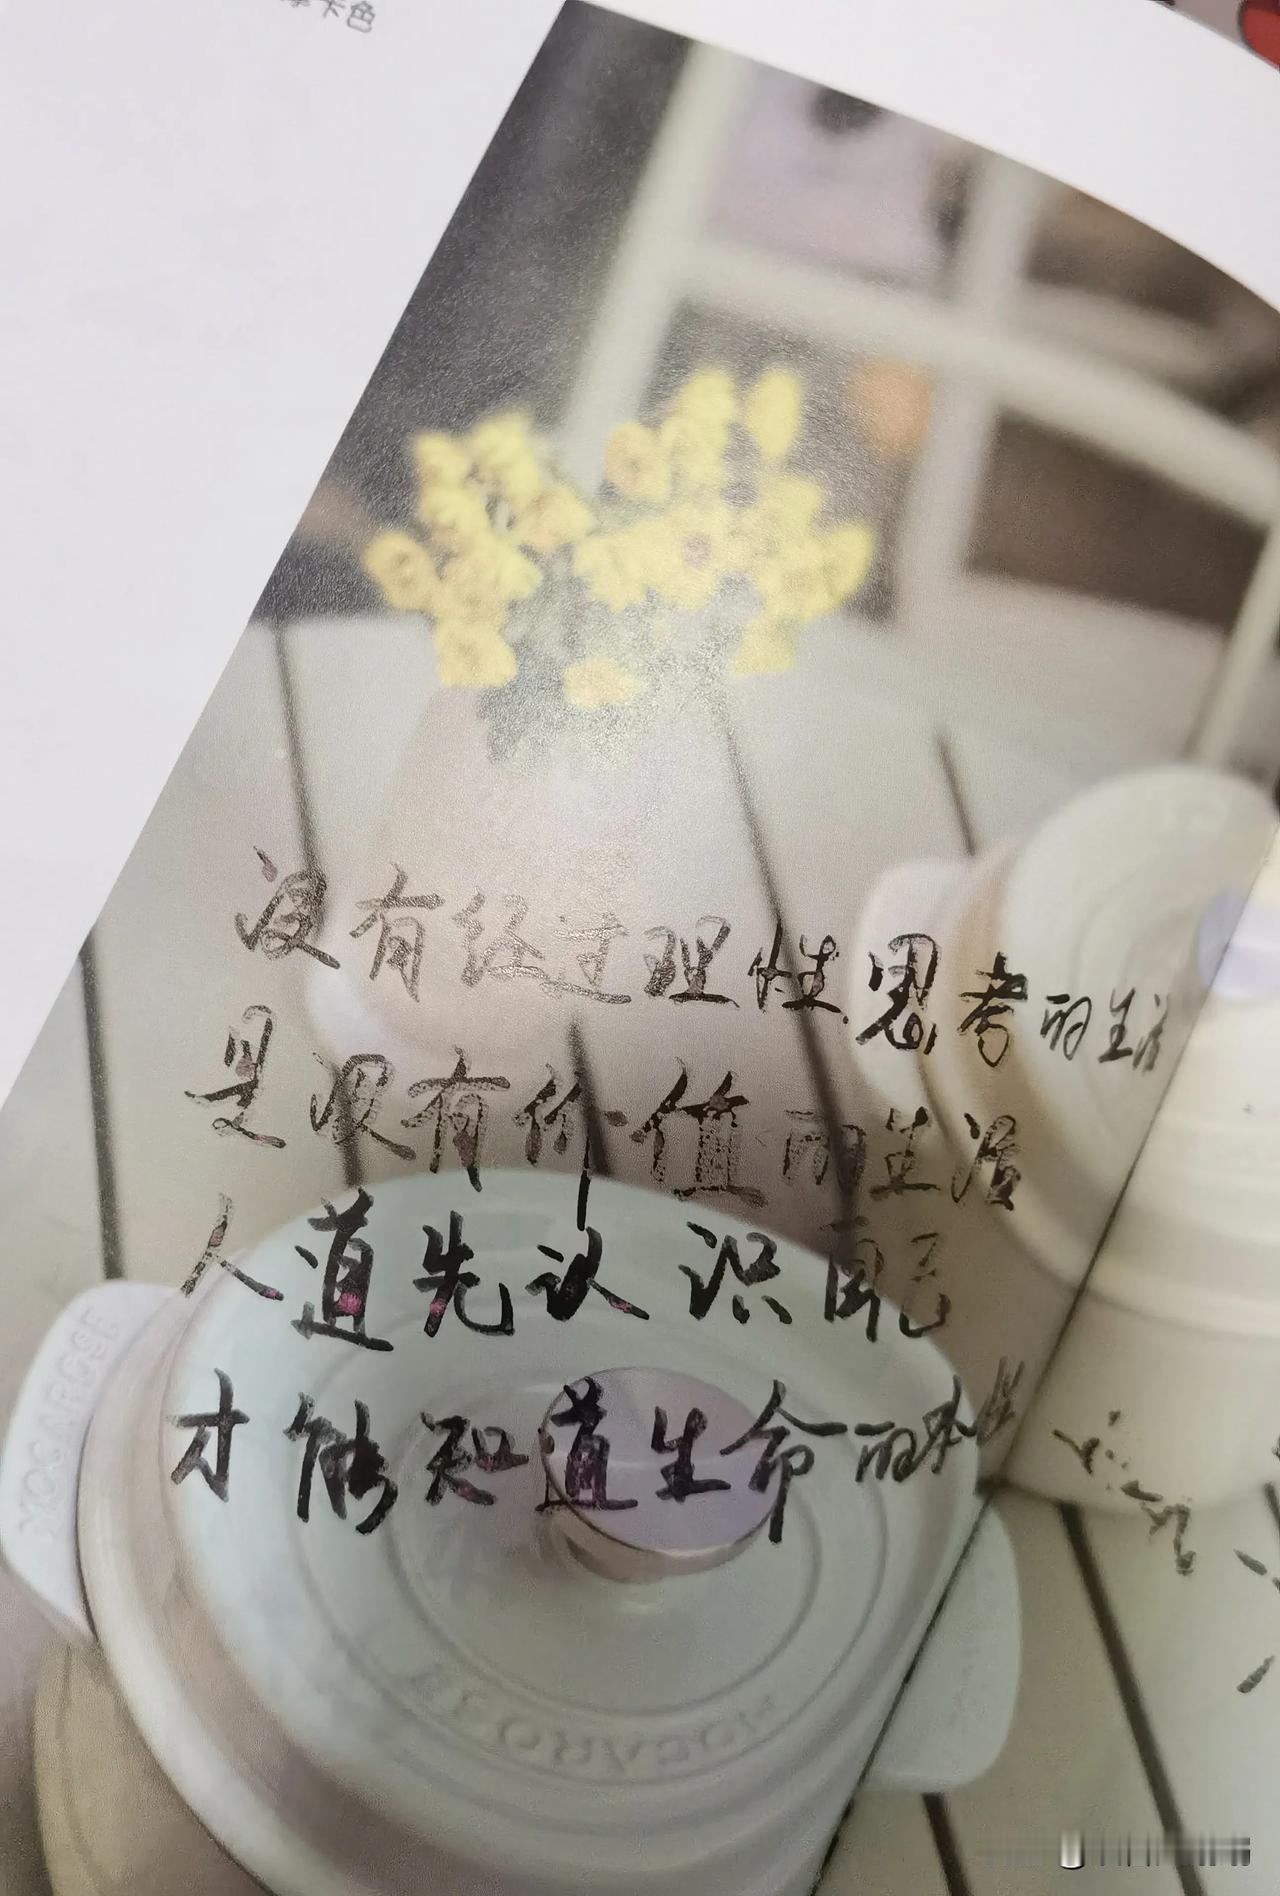 摩卡色
没有经过理性思考的生活
是没有价值的生活
人道先认识自己
才能知道生命的本性
MOCAROSE
MOCAROSE